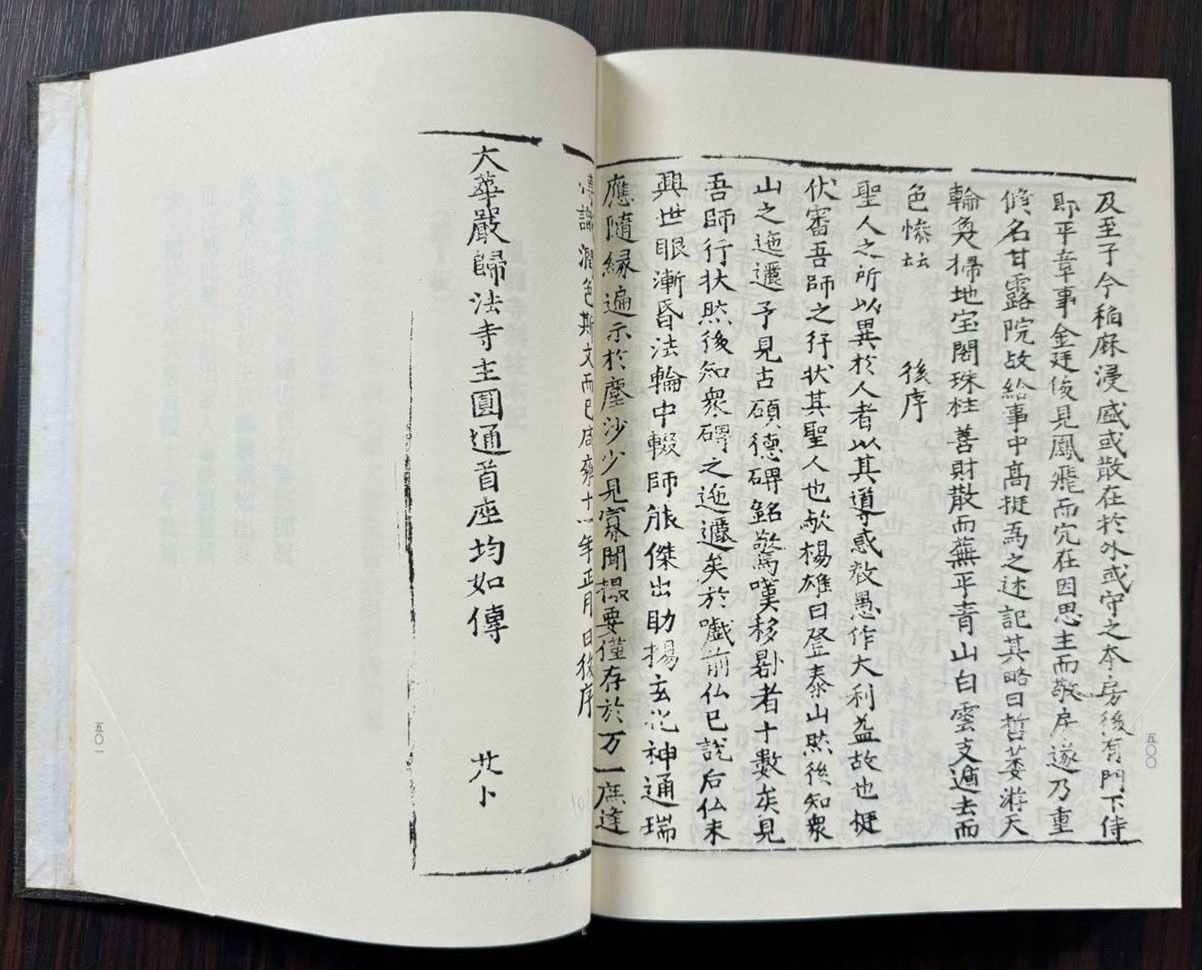 及至于今稲麻浸盛或散在於外或守之本房後有門下侍
郎平章事金廷俊見鳳飛而穴在因思主而敬房遂乃重
俻名甘露院故給事中高挺為之述記其略曰哲萎游天
輪奐掃地宝閣珠柱善財散而蕪平青山白雲支遁去而
色惨坛
後序
聖人之所以異於人者以其導惑教愚作大利益故也挺
伏審吾師之行状其聖人也歟楊雄曰登泰山然後知衆
山之迤邐予見古碩德碑銘驚嘆移晷者十數矣見
吾師行状然後知衆碑之迤邐矣於戱前仏已說后仏未
興世眼漸昏法輪中輟師能傑出助揚玄化神通瑞
應隨縁遍示於塵沙少見寡聞撮要僅存於万一庶達
博識潤色斯文而已咸雍十一年正月日後序
大華嚴歸法寺主圓通首座均如傳
五〇〇
五〇一